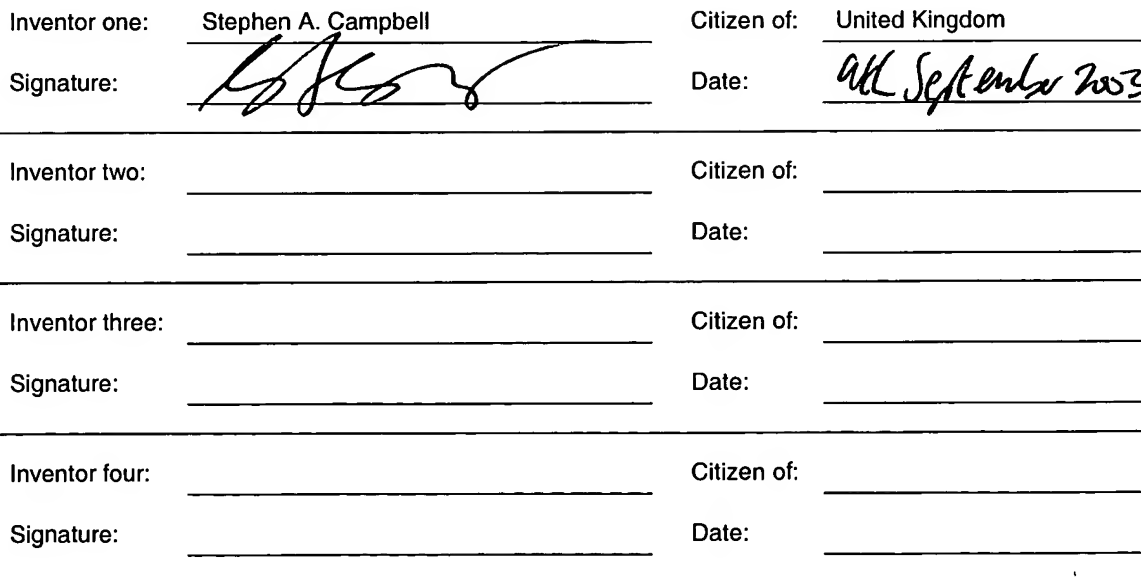 Inventor one: Stephen A. Campbell Citizen of: United Kingdom
Signature: Date: 9th September 2003
Inventor two: Citizen of:
Signature: Date:
Inventor three: Citizen of:
Signature: Date:
Inventor four: Citizen of:
Signature: Date: